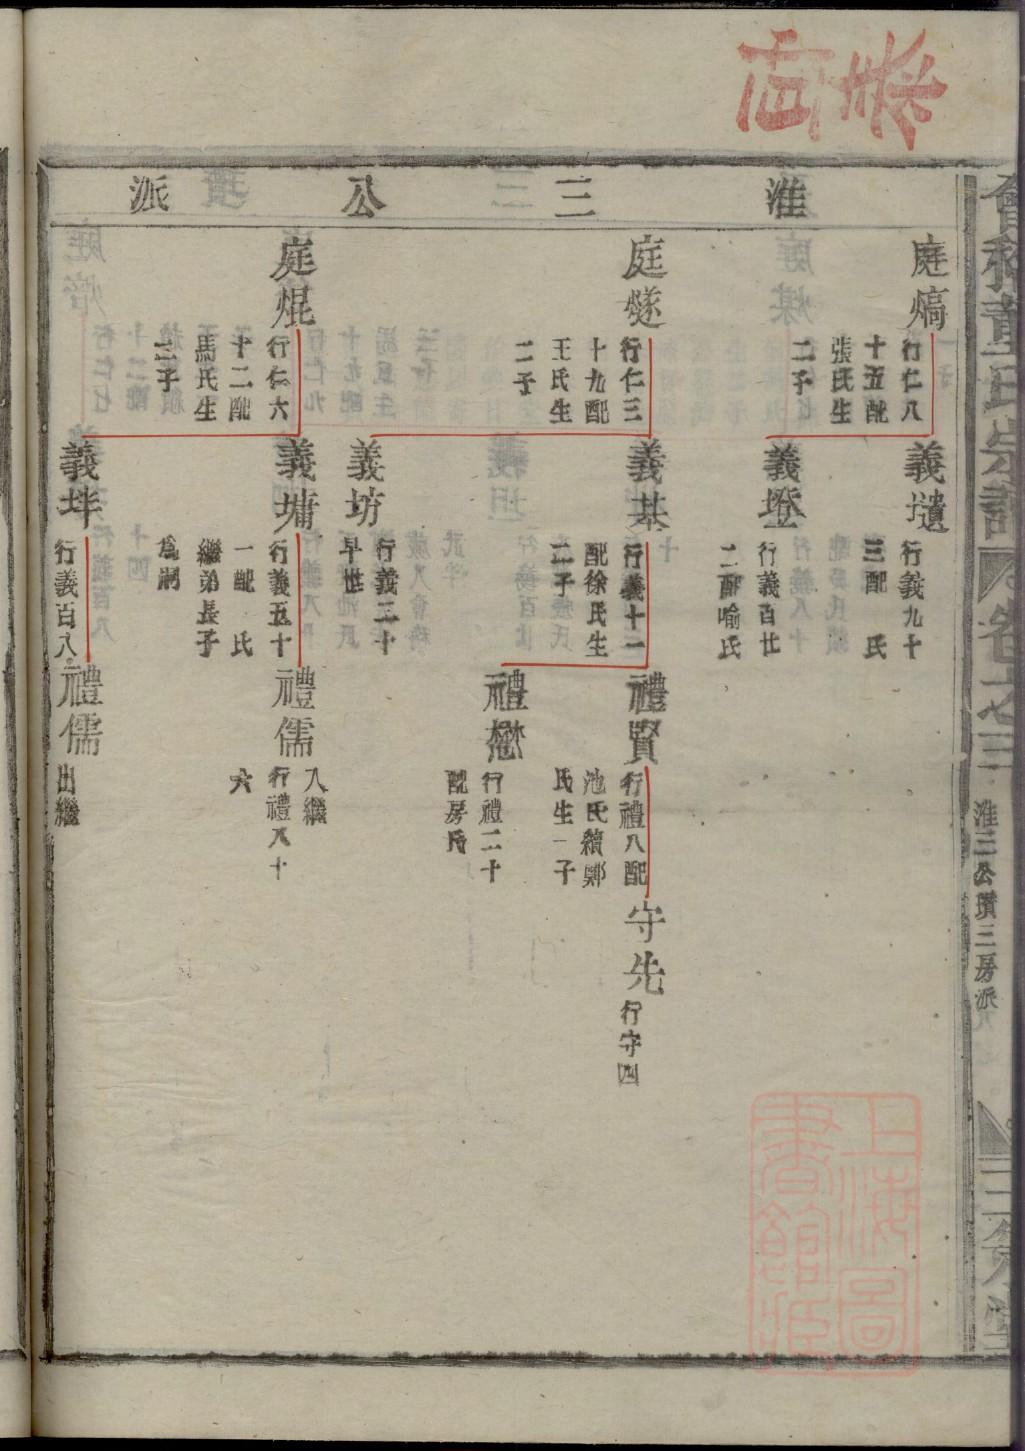 淮三公派
庭熇
行仁八
十五配
張氏生
二子
義𡑞
行義九十
三配 氏
義墱
行義百廿
二配喻氏
庭燧
行仁三
十九配
王氏生
二子
義基
行義十二
配徐氏生
二子
禮賢
行禮八配
池氏續鄭
氏生一子
守先
行守四
禮懋
行禮二十
配房氏
義坊
行義三十
早世
庭焜
行仁六
十二配
馬氏生
二子
義墉
行義五十
一配 氏
繼弟長子
為嗣
禮儒
入繼
行禮八十
六
義坪
行義百八
禮儒
出繼
會稽董氏宗譜
卷之三
淮三公瓚三房派
上海圖書館藏